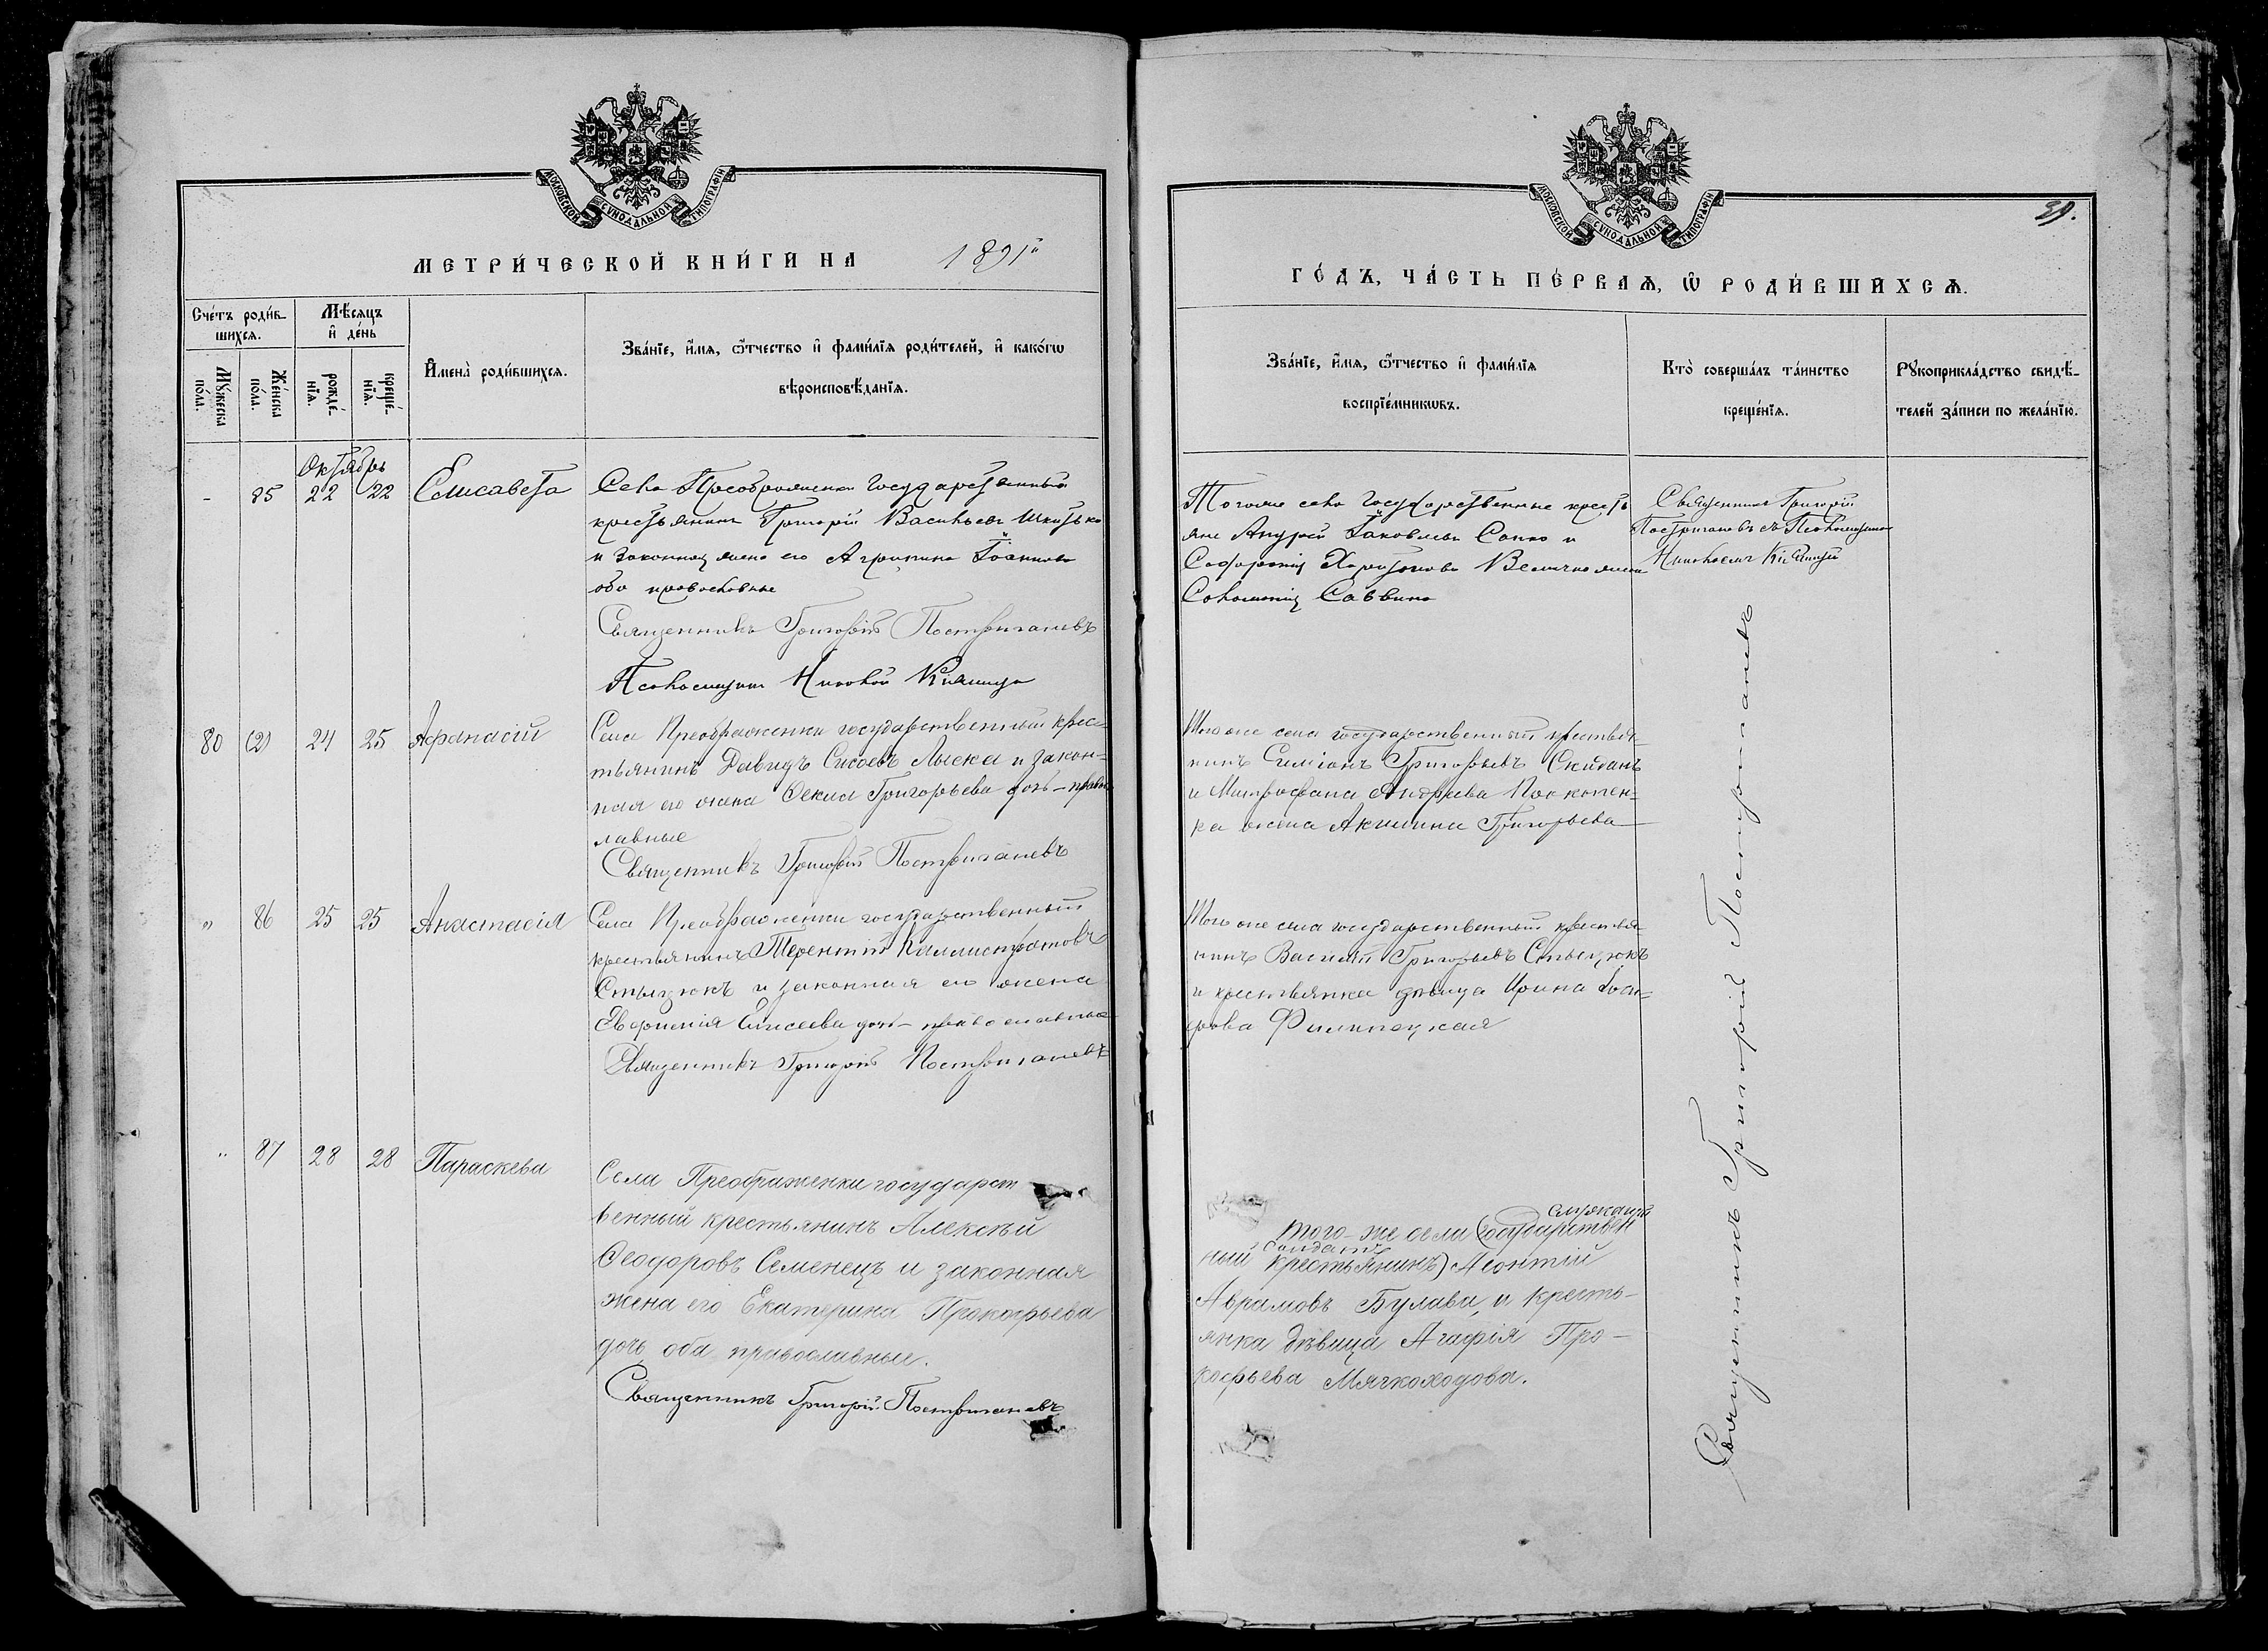 МОСКОВСКОЙ СѴНОДАЛЬНОЙ ТИПОГРАФІИ
МЕТРИ́ЧЕСКОЙ КНИ́ГИ НА 1891й
Сче́тъ роди́в-
шихсѧ.
Мѣ́сѧцъ
и҆ де́нь
Мꙋ́жеска
по́ла.
Же́нска
по́ла.
рожде́-
нїѧ.
креще́-
нїѧ.
И҆мена̀ роди́вшихсѧ.
Зва́нїе, и҆́мѧ, ѻ҆́тчество и҆ фами́лїѧ роди́телей, и҆ како́гѡ
вѣроисповѣ́данїѧ.
Октябрь
- 85 22 22 Елисавета
Села Преображенки Государственный
крестьянинъ Григорій Васильевъ
и законная жена его Агрипина Іоаннова
оба православные
Священникъ Григорій Постриганевъ
Псаломщикъ Николай
80 (2) 24 25 Афанасій
Села Преображенки государственный крес-
тьянинъ Давидъ Сисоевъ Лыска и закон-
ная его жена Ѳекла Григорьева дочь - правос-
лавные
Священникъ Григорій Постриганевъ
" 86 25 25 Анастасія
Села Преображенки государственный
крестьянинъ Терентій Каллистратовъ
Стыцюкъ и законная его жена
Евфимія Елисеева дочь - православные
Священникъ Григорій Постриганевъ
" 87 28 28 Параскева
Села Преображенки государст
венный крестьянинъ Алексѣй
Ѳеодоровъ Семенецъ и законная
жена его Екатерина Прокофьева
дочь оба православные.
Священникъ Григорій Постриганевъ
МОСКОВСКОЙ СѴНОДАЛЬНОЙ ТИПОГРАФІИ
39.
ГО́ДЪ, ЧА́СТЬ ПЕ́РВАѦ, Ѡ҆ РОДИ́ВШИХСѦ.
Зва́нїе, и҆́мѧ, ѻ҆́тчество и҆ фами́лїѧ
воспрїе́мникѡвъ.
Кто̀ соверша́лъ та́инство
креще́нїѧ.
Рꙋкоприкла́дство свидѣ́-
телей за́писи по жела́нїю.
Тогоже села Государственные кресть
яне Андрей Іаковлевъ Сапко и
Харитонова
Саввина
Священникъ Григорій
Постриганевъ съ Псаломщикомъ
Николаемъ
Того же села государственный крестья-
нинъ Симіонъ Григорьевъ Скиданъ
и Митрофана Андреева Прокопен-
ка жена Акилина Григорьева
Того же села государственный крестья-
нинъ Василій Григорьевъ Стыцюкъ
и крестьянка дѣвица Ирина
Филипецкая
того-же села (государствен
ный крестьянинъ) Леонтій
солдатъ
Аврамовъ Булава, и кресть-
янка дѣвица Агафія Про-
кофьева Мягкоходова.
Священникъ Григорій Постриганевъ